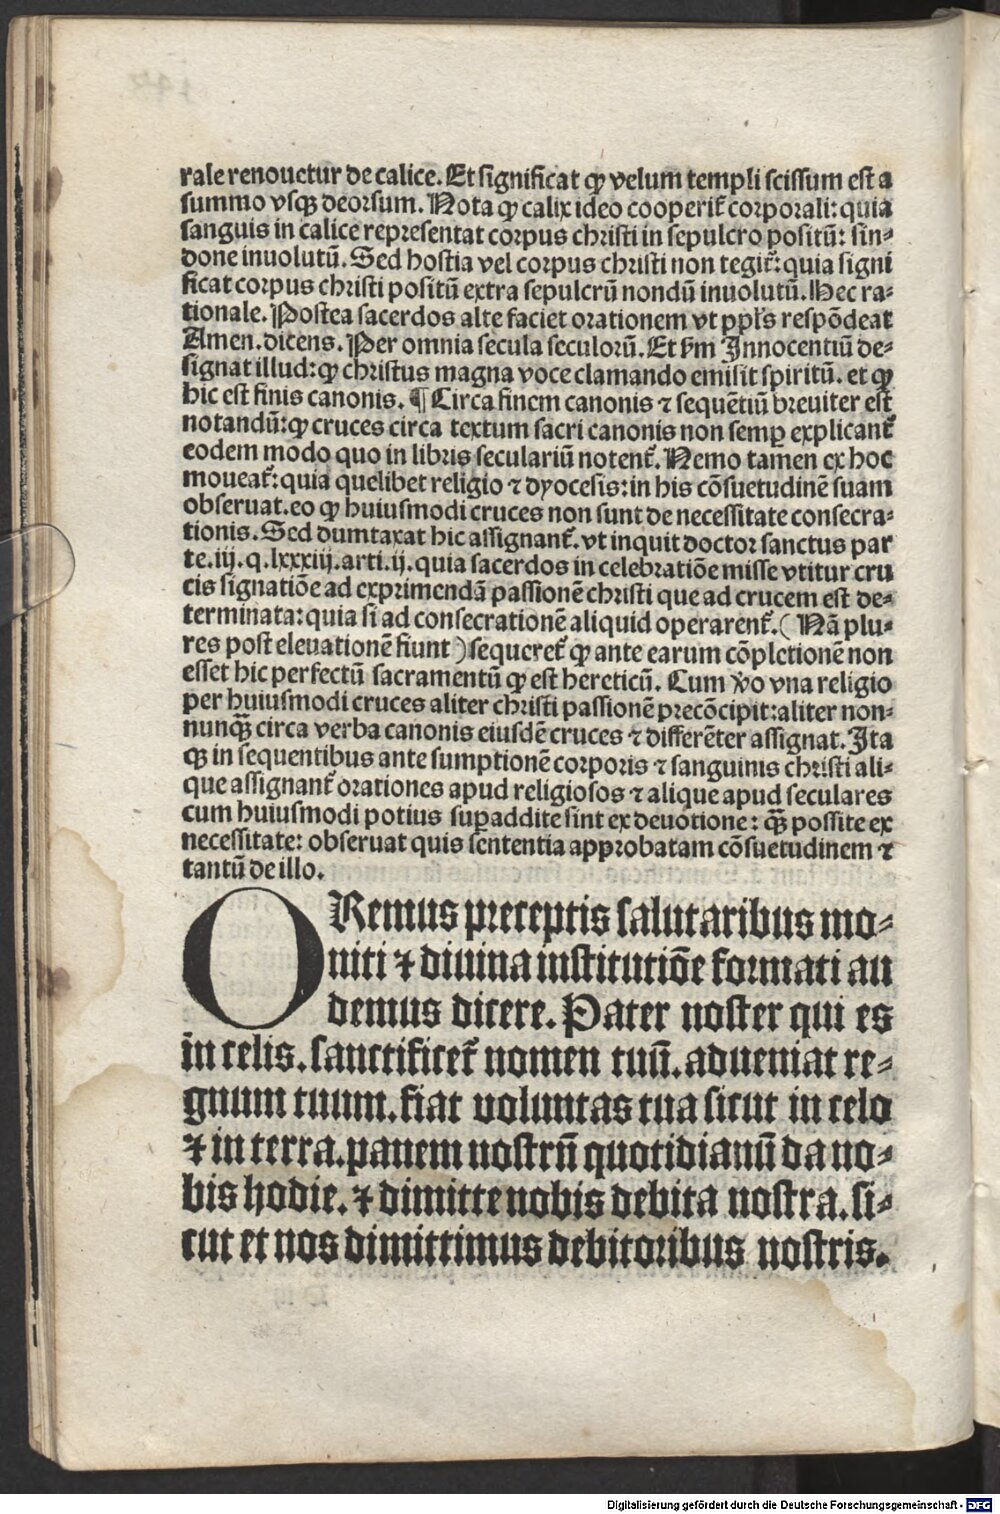 rale renouetur de calice. Et significat ꝙ velum templi scissum est a
summo vsqꝫ deorsum. Nota ꝙ calix ideo cooperit̉ corporali: quia
sanguis in calice representat corpus christi in sepulcro positū: sin⸗
done inuolutū. Sed hostia vel corpus christi non tegit̉: quia signi
ficat corpus christi positū extra sepulcrū nondū inuolutū. Hec ra⸗
tionale. Postea sacerdos alte faciet orationem vt ppl̄s respōdeat
Amen. dicens. Per omnia secula seculorū. Et ẜm Innocentiū de⸗
signat illud: ꝙ christus magna voce clamando emisit spiritū. et ꝙ
hic est finis canonis. ¶ Circa finem canonis ⁊ sequētiū breuiter est
notandū: ꝙ cruces circa textum sacri canonis non semꝑ explicant̉
eodem modo quo in libris seculariū notent̉. Nemo tamen ex hoc
moueat̉: quia quelibet religio ⁊ dyocesis: in his cōsuetudinē suam
obseruat. eo ꝙ huiusmodi cruces non sunt de necessitate consecra⸗
tionis. Sed dumtaxat hic assignant̉. vt inquit doctor sanctus par
te. iij. q. lxxxiij. arti. ij. quia sacerdos in celebratiōe misse vtitur cru
cis signatiōe ad exprimendā passionē christi que ad crucem est de⸗
terminata: quia si ad consecrationē aliquid operarent̉. (Nā plu⸗
res post eleuationē fiunt) sequeret̉ ꝙ ante earum cōpletionē non
esset hic perfectū sacramentū ꝙ est hereticū. Cum v̾o vna religio
per huiusmodi cruces aliter christi passionē precōcipit: aliter non⸗
nunqꝫ̄ circa verba canonis eiusdē cruces ⁊ differēter assignat. Ita
qꝫ in sequentibus ante sumptionē corporis ⁊ sanguinis christi ali⸗
que assignant̉ orationes apud religiosos ⁊ alique apud seculares
cum huiusmodi potius suꝑaddite sint ex deuotione: qꝫ̄ possite ex
necessitate: obseruat quis sententia approbatam cōsuetudinem ⁊
tantū de illo.
ORemus preceptis salutaribus mo⸗
niti ⁊ diuina institutiōe formati au
demus dicere. Pater noster qui es
in celis. sanctificet̉ nomen tuū. adueniat re⸗
gnum tuum. fiat voluntas tua sicut in celo
⁊ in terra. panem nostrū quotidianū da no⸗
bis hodie. ⁊ dimitte nobis debita nostra. si⸗
cut et nos dimittimus debitoribus nostris.
Digitalisierung gefördert durch die Deutsche Forschungsgemeinschaft - DFG